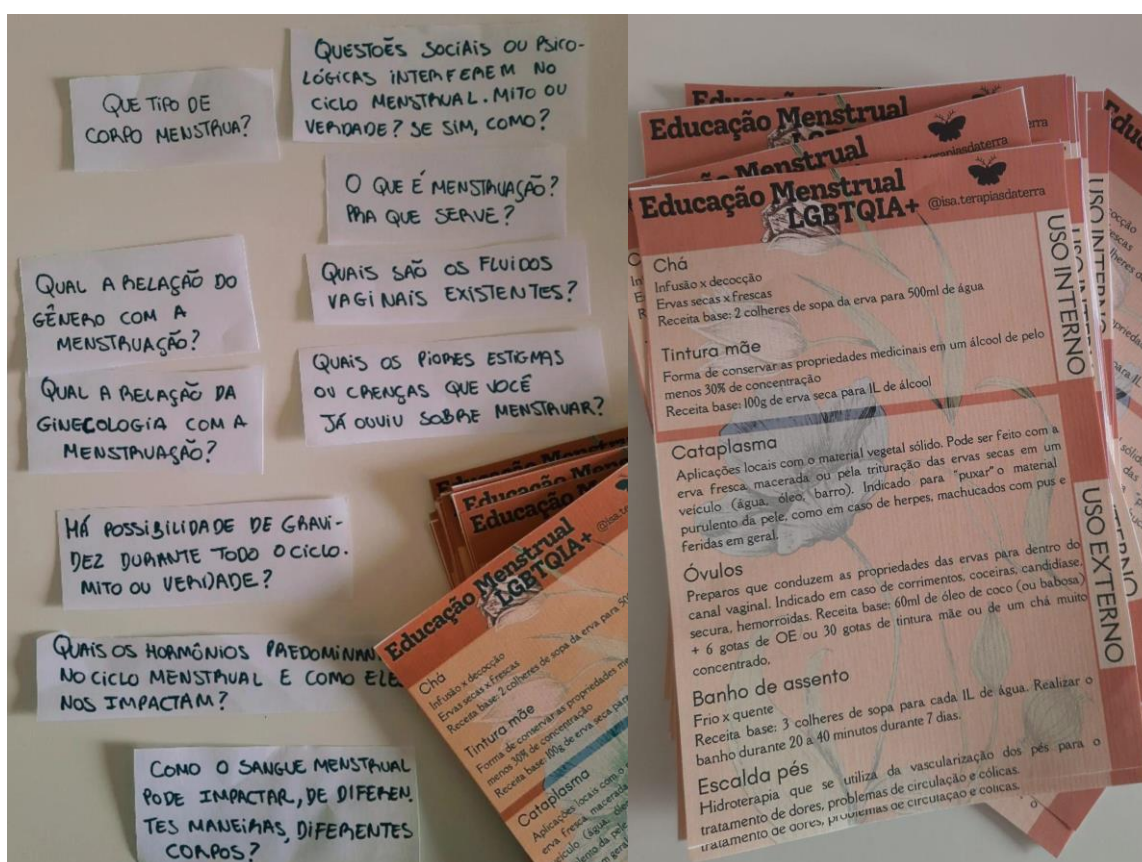 QUE TIPO DE
CORPO MENSTRUA?
QUESTOẼS SOCIAIS OU PSICO-
LÓGICAS INTERFEREM NO
CICLO MENSTRUAL. MITO OU
VERDADE? SE SIM, COMO?
O QUE É MENSTRUAÇÃO?
PRA QUE SERVE?
QUAL A RELAÇÃO DO
GÊNERO COM A
MENSTRUAÇÃO?
QUAIS SÃO OS FLUIDOS
VAGINAIS EXISTENTES?
QUAL A RELAÇÃO DA
GINECOLOGIA COM A
MENSTRUAÇÃO?
QUAIS OS PIORES ESTIGMAS
OU CRENÇAS QUE VOCÊ
JÁ OUVIU SOBRE MENSTRUAR?
HÁ POSSIBILIDADE DE GRAVI-
DEZ DURANTE TODO O CICLO.
MITO OU VERDADE?
QUAIS OS HORMÔNIOS
NO CICLO MENSTRUAL E COMO
NOS IMPACTAM?
COMO O SANGUE MENSTRUAL
PODE IMPACTAR, DE DIFEREN
TES MANEIRAS, DIFERENTES
CORPOS?
Educação Menstrual
LGBTQIA+
Chá
Infusão x decocção
Ervas secas x frescas
Receita base: 2 colheres de sopa da erva para
Tintura mãe
Forma de conservar as propriedades
menos 30% de concentração
Receita base: 100g de erva seca
Cataplasma
Aplicações locais com o
Educação Menstrual
Educação Menstrual
Educação Menstrual
LGBTQIA+
@isa.terapiasdaterra
USO INTERNO
Chá
Infusão x decocção
Ervas secas x frescas
Receita base: 2 colheres de sopa da erva para 500ml de água
Tintura mãe
Forma de conservar as propriedades medicinais em um álcool de pelo
menos 30% de concentração
Receita base: 100g de erva seca para 1L de álcool
USO EXTERNO
Cataplasma
Aplicações locais com o material vegetal sólido. Pode ser feito com a
erva fresca macerada ou pela trituração das ervas secas em um
veículo (água, óleo, barro). Indicado para "puxar" o material
purulento da pele, como em caso de herpes, machucados com pus e
feridas em geral.
Óvulos
Preparos que conduzem as propriedades das ervas para dentro do
canal vaginal. Indicado em caso de corrimentos, coceiras, candidíase,
secura, hemorroidas. Receita base: 60ml de óleo de coco (ou babosa)
+ 6 gotas de OE ou 30 gotas de tintura mãe ou de um chá muito
concentrado,
Banho de assento
Frio x quente
Receita base: 3 colheres de sopa para cada 1L de água. Realizar o
banho durante 20 a 40 minutos durante 7 dias.
Escalda pés
Hidroterapia que se utiliza da vascularização dos pés para o
tratamento de dores, problemas de circulação e cólicas.
tratamento de dores, problemas de circulação e cólicas.